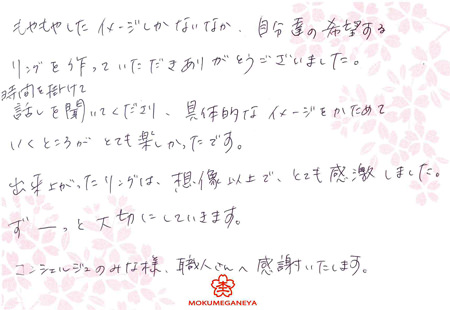 もやもやしたイメージしかないなか、自分達の希望する
リングを作っていただきありがとうございました。
時間を掛けて
話しを聞いてくださり、具体的なイメージをかためて
いくところがとても楽しかったです。
出来上がったリングは、想像以上で、とても感激しました。
ずーっと大切にしていきます。
コンシェルジュのみな様、職人さんへ感謝いたします。
MOKUMEGANEYA